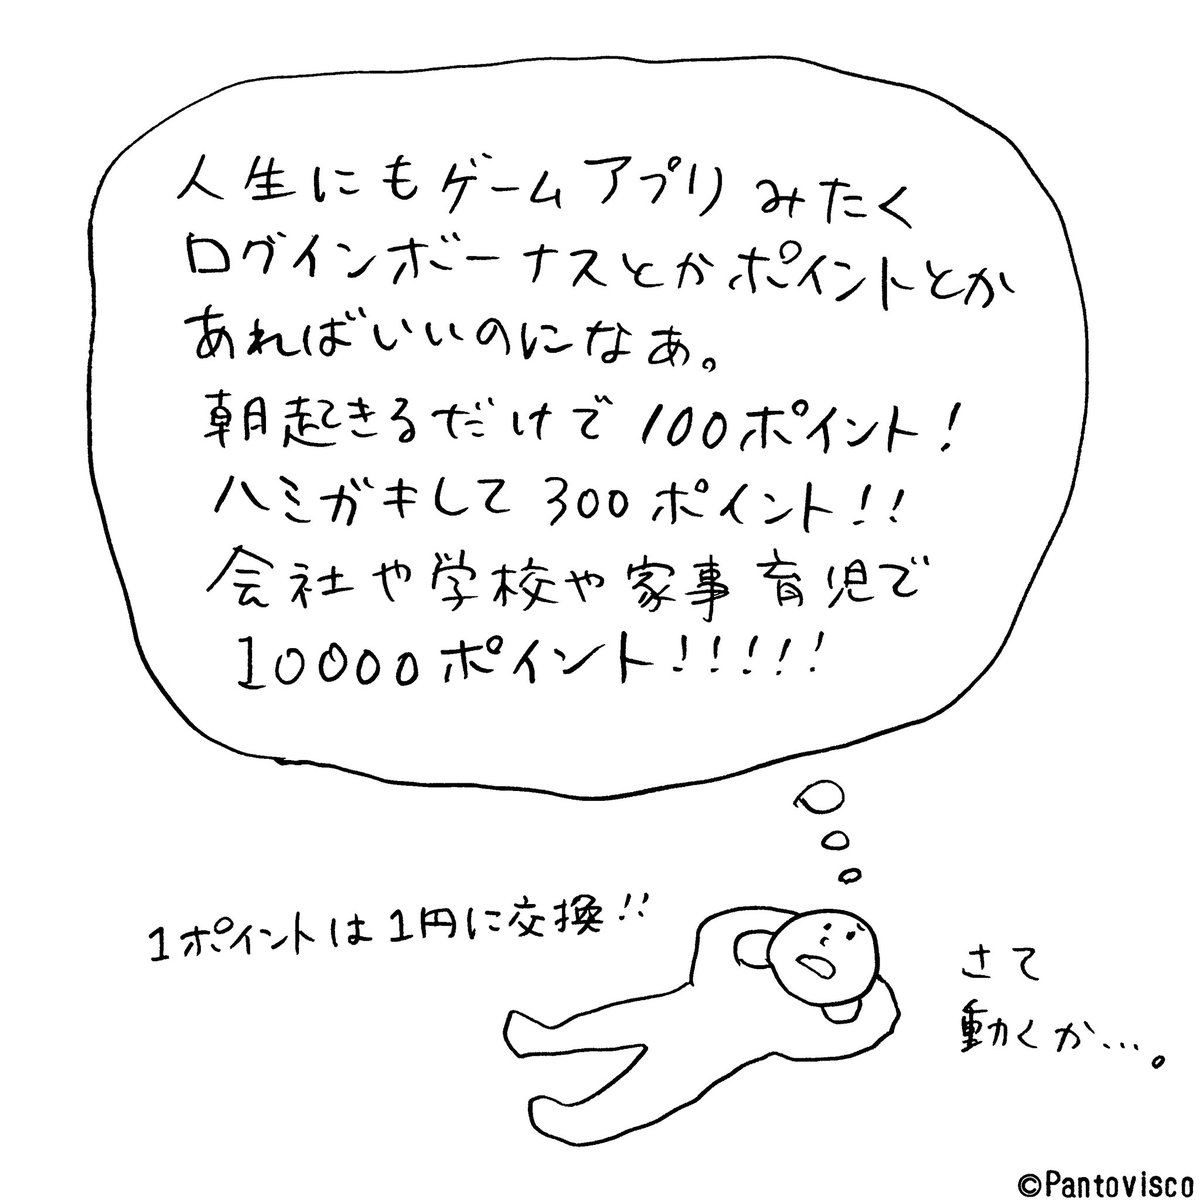 人生にもゲームアプリみたく
ログインボーナスとかポイントとか
あればいいのになぁ。
朝起きるだけで100ポイント!
ハミガキして300ポイント!!
会社や学校や家事育児で
10000ポイント!!!!!
1ポイントは1円に交換!!
さて
動くか…。
©Pantovisco